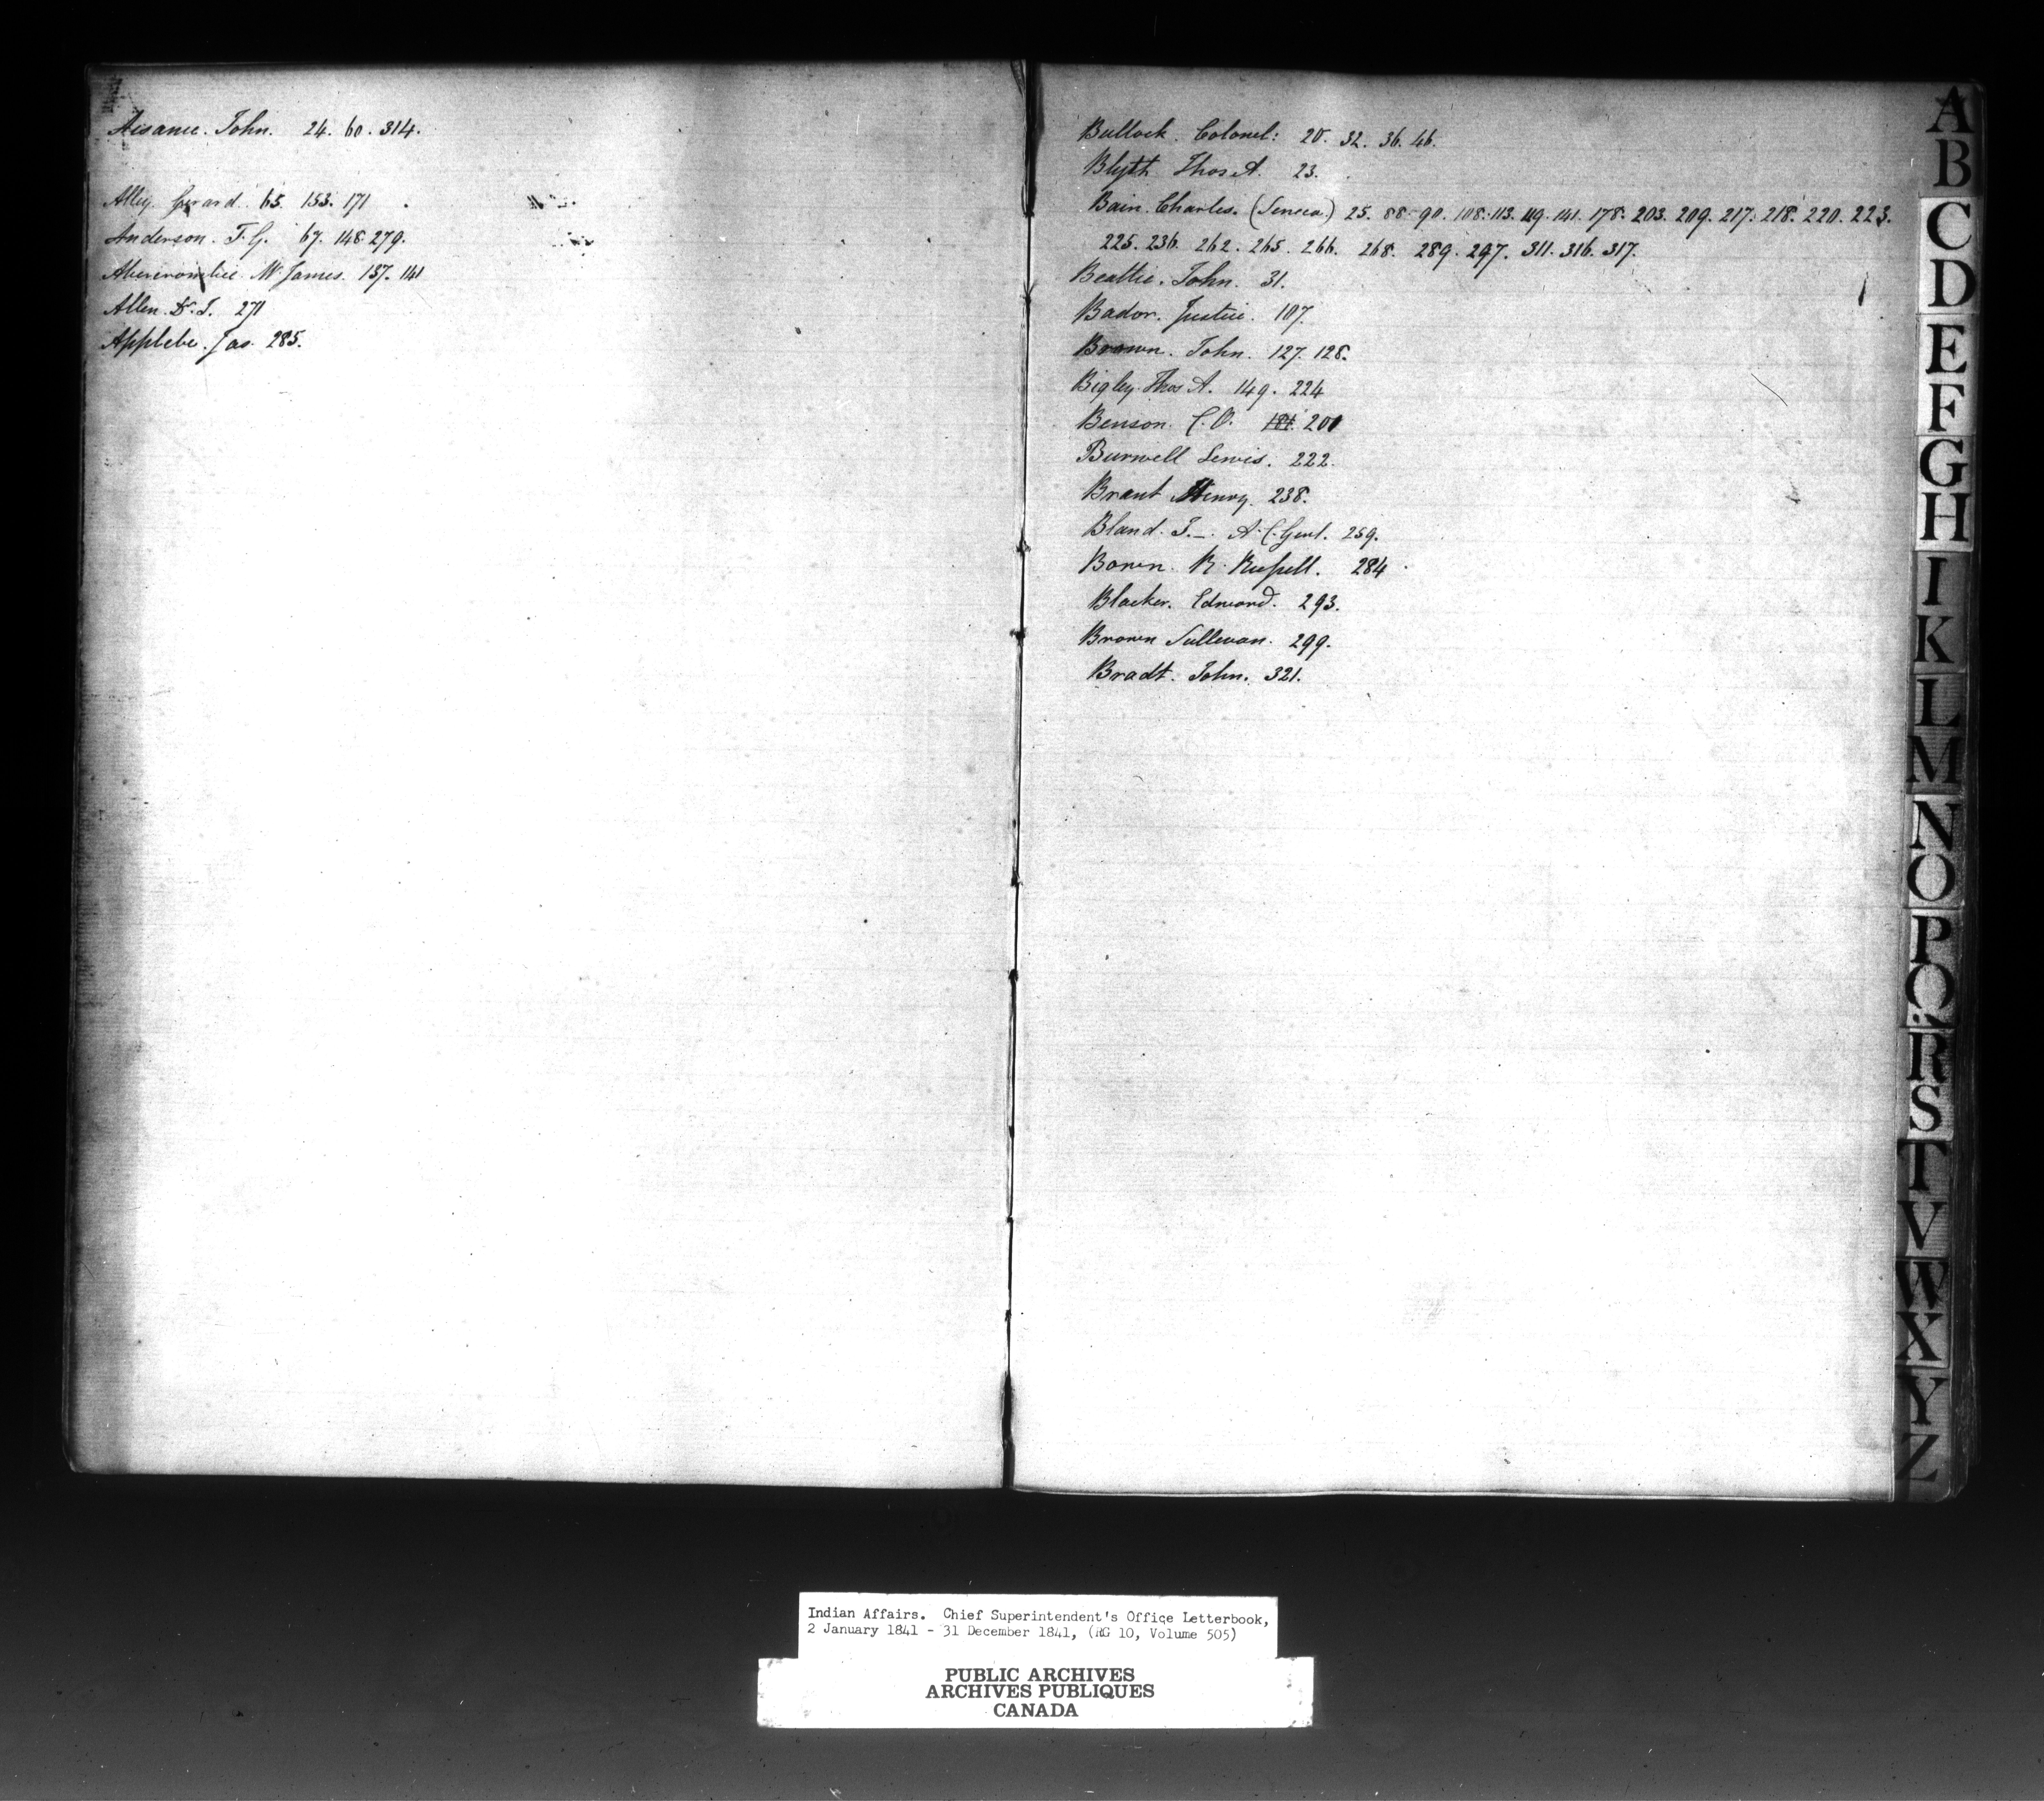 Aisance. John. 24. 60. 314.
Alley. Gerard. 65. 153. 171
Anderson. T. G. 67. 148. 279.
Abercrombie Mr James. 137. 141
Allen. Dr. T. 271
Applebe. Jas. 285.
Bullock. Colonel: 20. 32. 36. 46.
Blyth Thos A. 23.
Bain. Charles. (Seneca) 25. 88. 90. 108. 113. 119. 141. 178. 203. 209. 217. 218. 220. 223.
225. 236. 262. 265. 266. 268. 289. 297. 311. 316. 317.
Beattie. John. 31.
Bador. Justice. 107.
Brown. John. 127. 128.
Bigley Thos A. 149. 224
Benson. C. O. 181. 200
Burwell Lewis. 222.
Brant Henry. 238.
Bland. T. A. C. Genl. 259.
Bown. R. Russell. 284
Blacker. Edward. 293.
Brown Sullevan. 299.
Bradt. John. 321.
A
B
C
D
E
F
G
H
I
K
L
M
N
O
P
Q
R
S
T
V
W
X
Y
Z
Indian Affairs. Chief Superintendent's Office Letterbook,
2 January 1841 - 31 December 1841, (RG 10, Volume 505)
PUBLIC ARCHIVES
ARCHIVES PUBLIQUES
CANADA